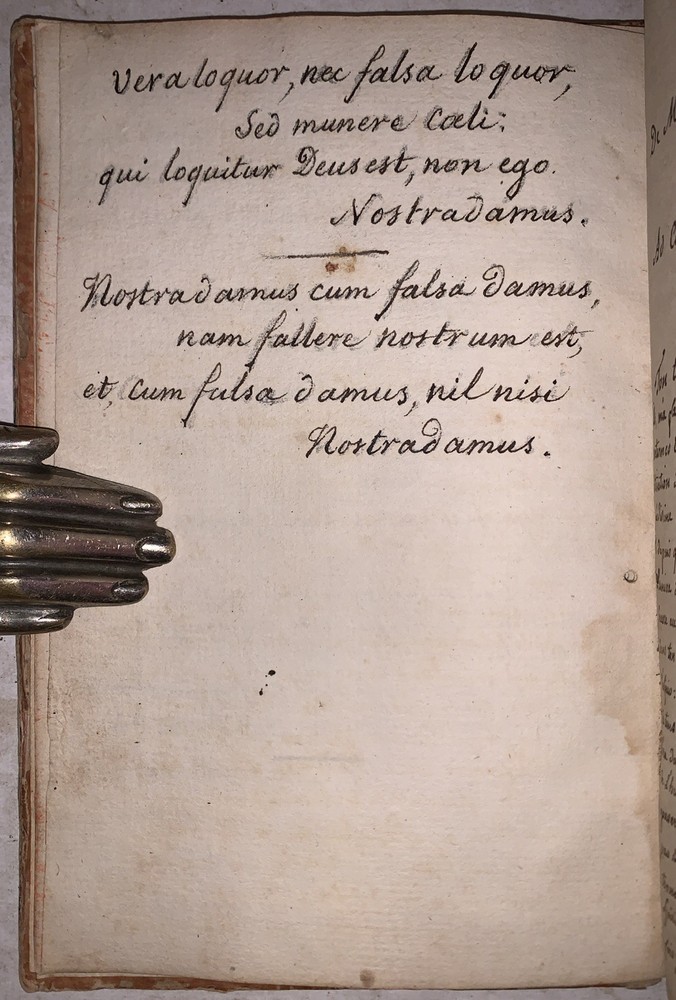 Vera loquor, nec falsa loquor,
Sed munere Cœli:
qui loquitur Deus est, non ego.
Nostradamus.
Nostradamus cum falsa damus,
nam fallere nostrum est,
et, cum falsa damus, nil nisi
Nostradamus.